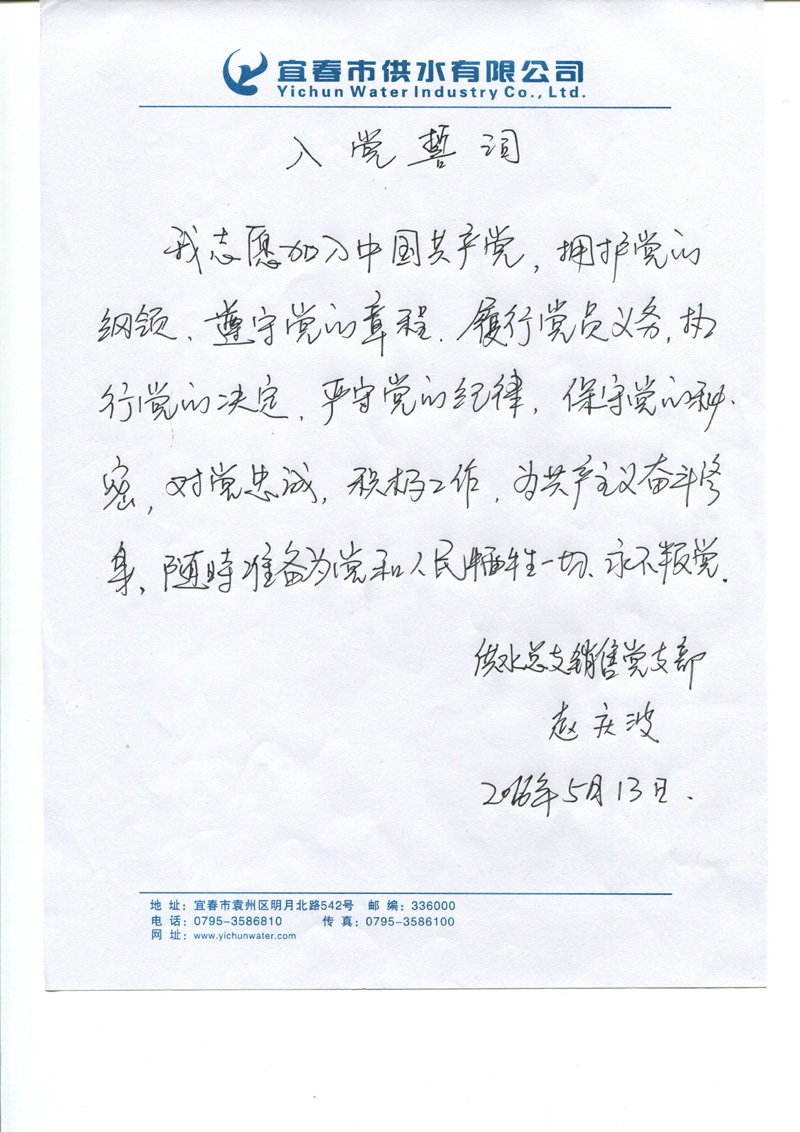 宜春市供水有限公司
Yichun Water Industry Co., Ltd.
入党誓词
我志愿加入中国共产党，拥护党的
纲领、遵守党的章程．履行党员义务，执
行党的决定，严守党的纪律，保守党的秘
密，对党忠诚，积极工作，为共产主义奋斗终
身，随时准备为党和人民牺牲一切、永不叛党．
供水总支销售党支部
赵庆波
2016年5月13日．
地 址：宜春市袁州区明月北路542号 邮 编：336000
电 话：0795-3586810 传 真：0795-3586100
网 址：www.yichunwater.com